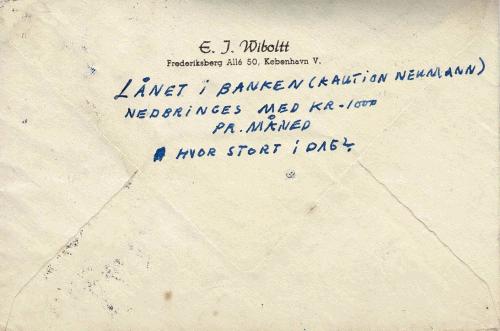 E. J. Wiboltt
Frederiksberg Allé 50, København V.
LÅNET i BANKEN (KAUTION NEUMANN)
NEDBRINGES MED KR-1000
PR. MÅNED
HVOR STORT i DAG?